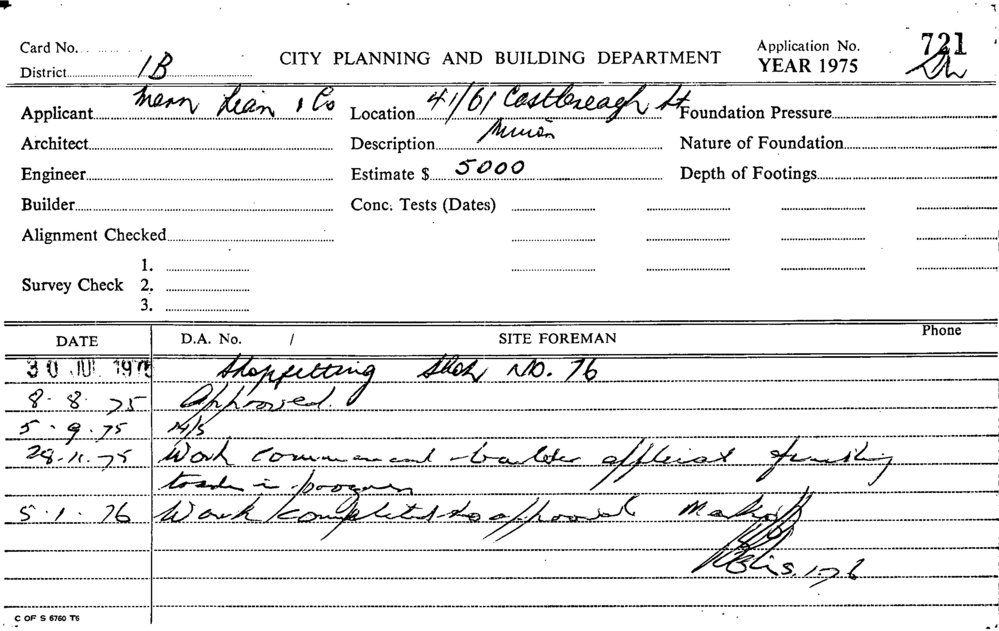 Card No.
District 1B
CITY PLANNING AND BUILDING DEPARTMENT
Application No. 721
YEAR 1975
Applicant & Co
Location 41/61 Castlereagh St
Foundation Pressure
Architect
Description
Nature of Foundation
Engineer
Estimate $ 5000
Depth of Footings
Builder
Conc. Tests (Dates)
Alignment Checked
Survey Check
1.
2.
3.
DATE
D.A. No. /
SITE FOREMAN
Phone
30 JUL 1975 Shopfitting Shop NO. 76
8. 8. 75 Approved.
5. 9. 75 N/S
28.11.75 Work finishing
trades in progress
5.1.76 Work completed to approval
5.1.76
C OF S 6760 T6